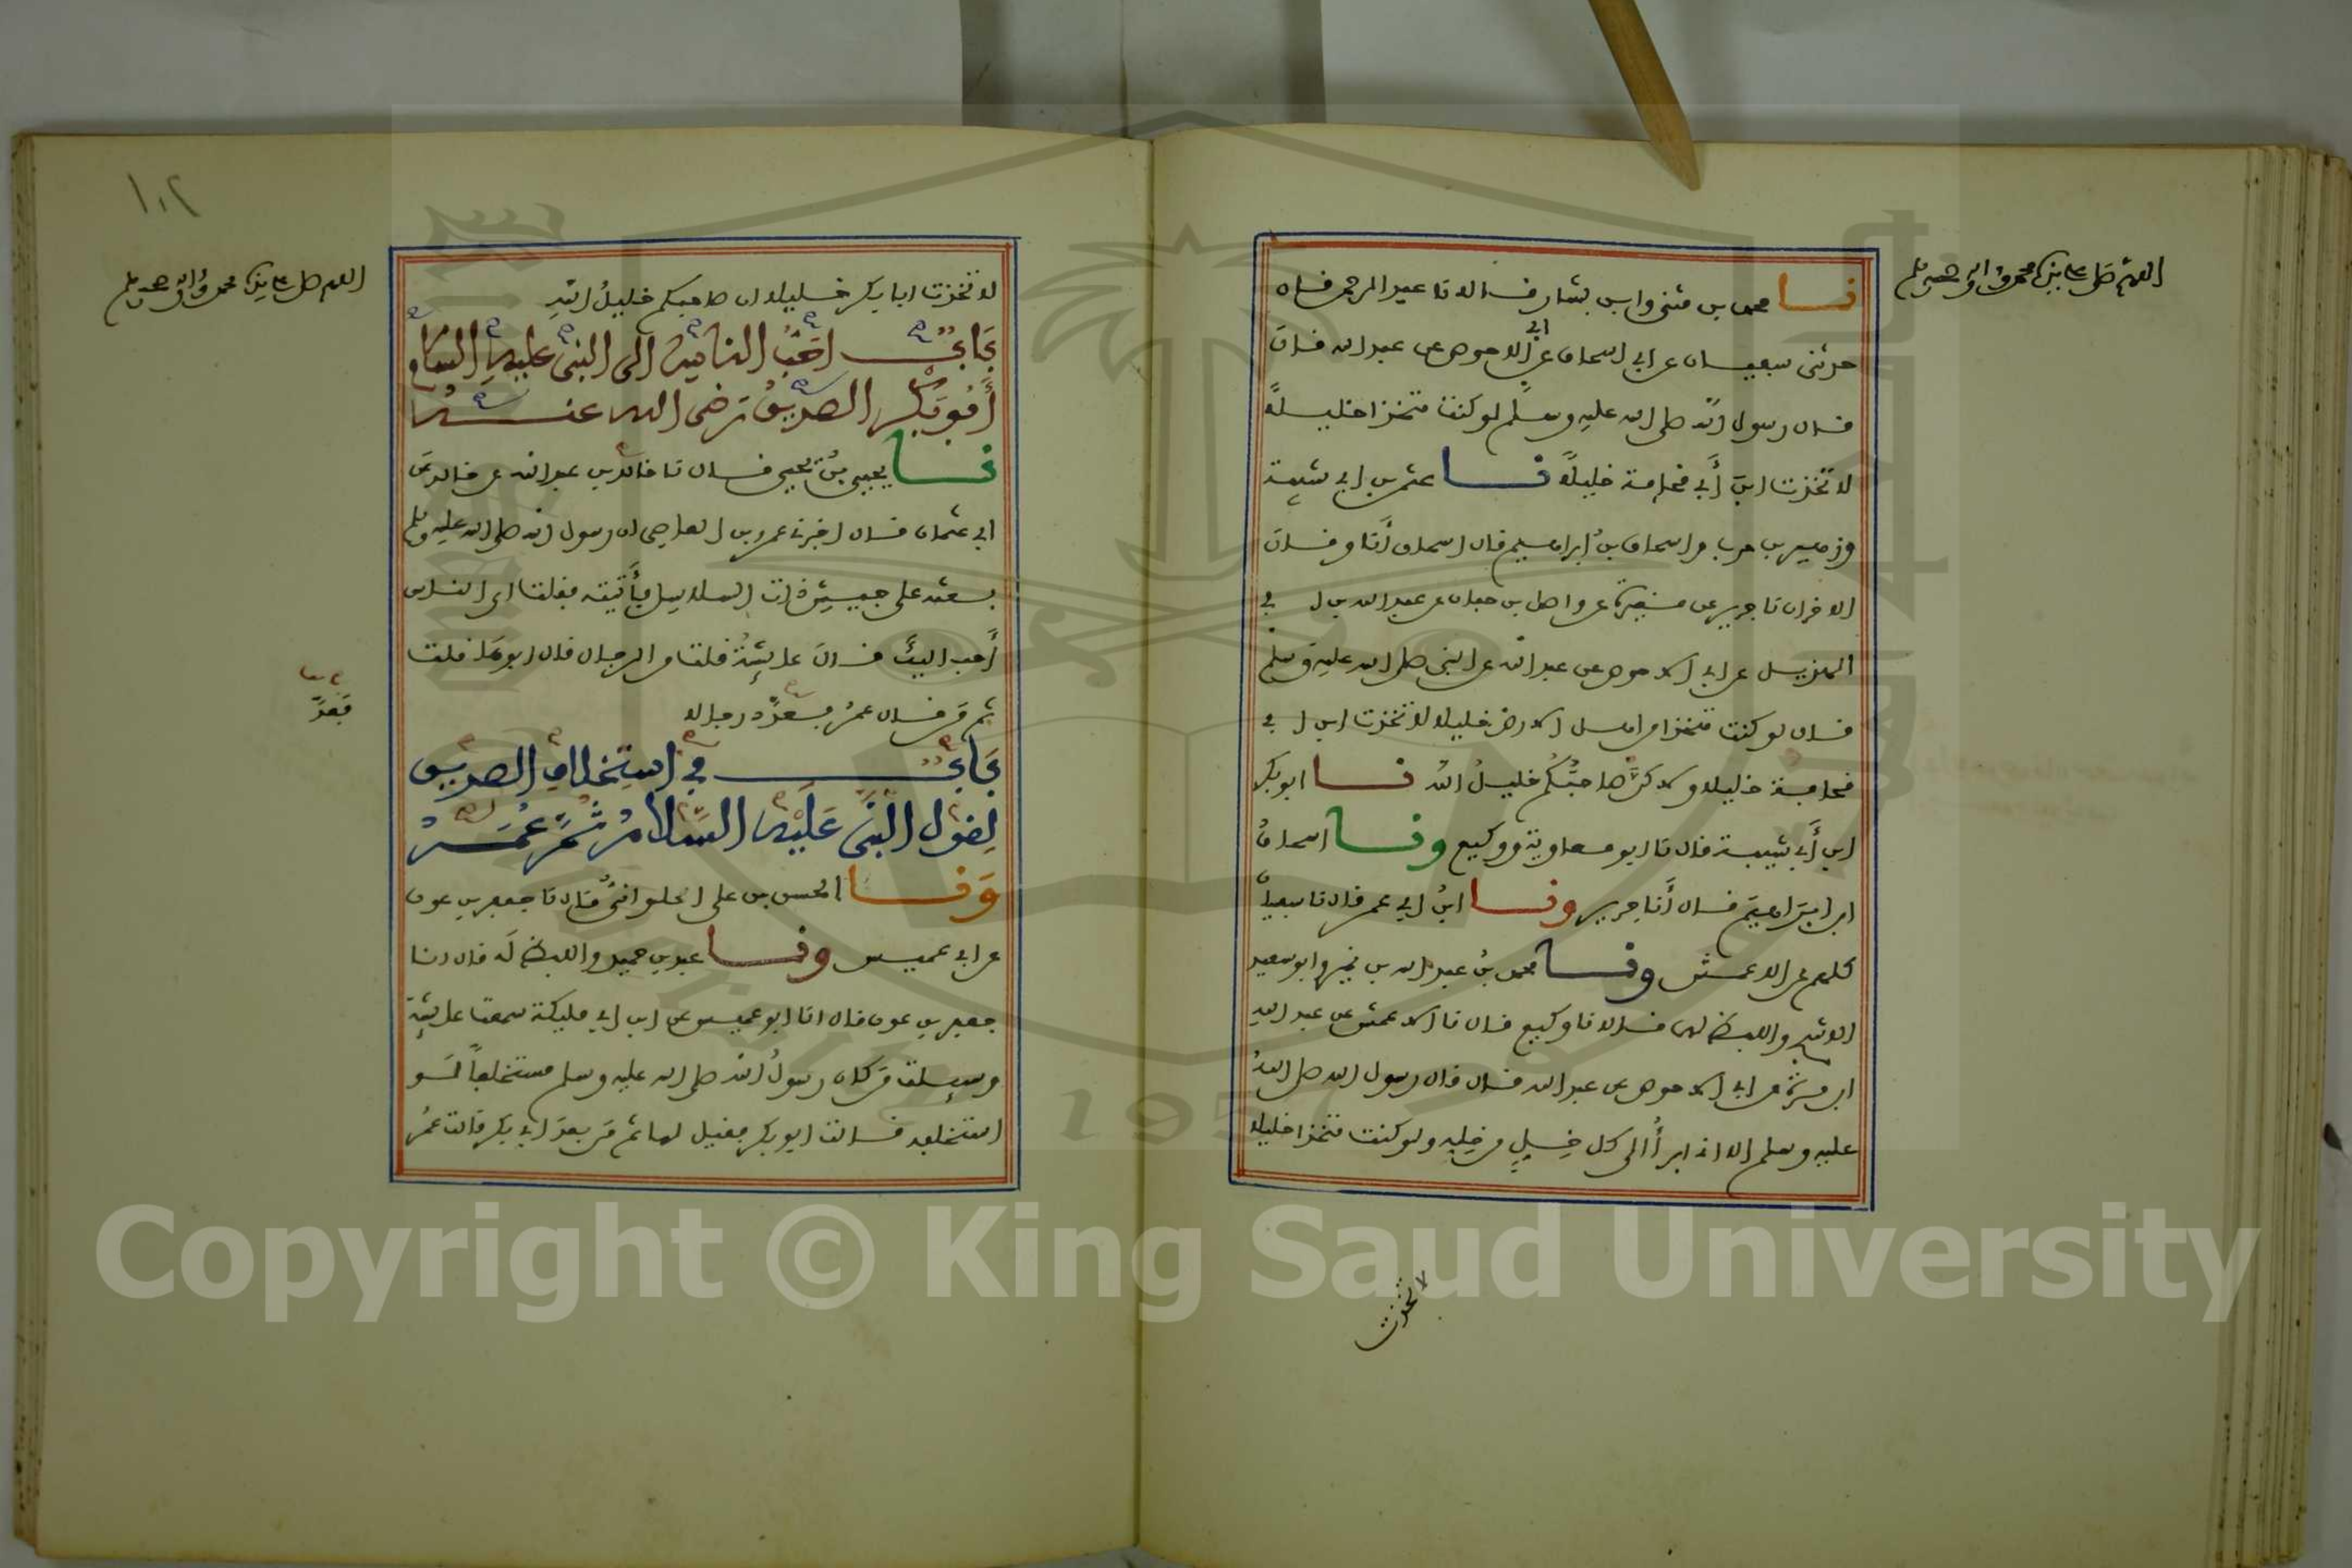 اللهم صل على نبيك محمد وآله وصحبه وسلم
نا محمد بن مثنى وابن بشار قالا نا عبد الرحمن قال
حدثنى سفيان عن ابي اسحاق عن ابي الاحوص عن عبد الله قال
قال رسول الله صلى الله عليه وسلم لو كنت متخذا خليلاً
لاتخذت ابن أبي قحافة خليلاً نا عثمن بن ابي شيبة
وزهير بن حرب واسحاق بن ابراهيم قال اسحاق أنا وقال
الاخران نا جرير عن مغيرة عن واصل بن حيان عن عبد الله بن ابي
الهذيل عن ابي الاحوص عن عبد الله عن النبى صلى الله عليه وسلم
قال لو كنت متخذا من اهل الارض خليلا لاتخذت ابن ابي
قحافة خليلا ولاكن صاحبكم خليل الله نا ابو بكر
ابن أبي شيبة قال نا ابو معاوية ووكيع ونا اسحاق
ابن ابراهيم قال أنا جرير ونا ابن ابي عمر قال نا سفيان
كلهم عن الاعمش ونا محمد بن عبد الله بن نمير وابو سعيد
الاشج واللفظ لهما قالا نا وكيع قال نا الاعمش عن عبد الله
ابن مرة عن ابي الاحوص عن عبد الله قال قال رسول الله صلى الله
عليه وسلم الا انى ابرأ الى كل خليل من خله ولو كنت متخذا خليلا
لاتخذت
١٠٢
اللهم صل على نبيك محمد وآله وصحبه وسلم
لاتخذت ابا بكر خليلا ان صاحبكم خليل الله
باب احب الناس الى النبى عليه السلام
أبو بكر الصديق رضى الله عنه
نا يحيى بن يحيى قال نا خالد بن عبد الله عن خالد عن
ابي عثمان قال اخبرني عمرو بن العاصى ان رسول الله صلى الله عليه وسلم
بعثه على جيش ذات السلاسل فأتيته فقلت اي الناس
أحب اليك قال عايشة قلت من الرجال قال ابوها قلت
ثم من قال عمر فعد رجالا
فعد
باب في استخلاف الصديق
لقول النبي عليه السلام ثم عمر
ونا الحسن بن على الحلواني قال نا جعفر بن عون
عن ابي عميس ونا عبد بن حميد واللفظ له قال انا
جعفر بن عون قال انا ابو عميس عن ابن ابي مليكة سمعت عايشة
وسيلت من كان رسول الله صلى الله عليه وسلم مستخلفاً لو
استخلفه قالت ابو بكر فقيل لها ثم من بعد ابي بكر قالت عمر
Copyright © King Saud University
1957